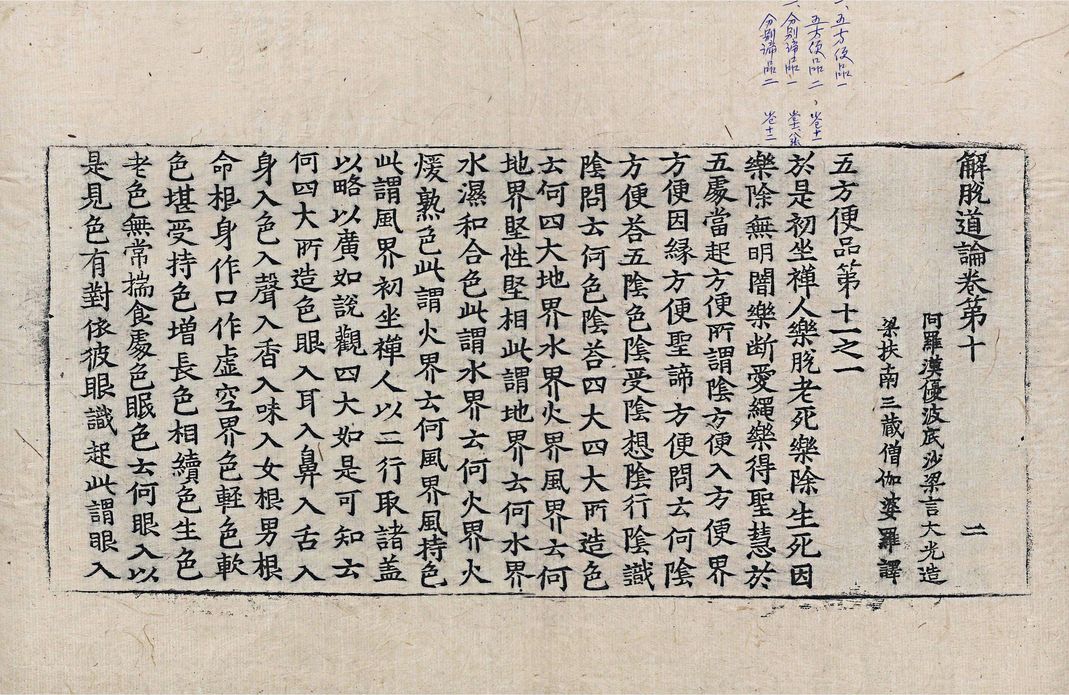 一、五方便品一
五方便品二、卷十一
一、分別諦品一
分別諦品二 卷十二
解脫道論卷第十 二
阿羅漢優波底沙梁言大光造
梁扶南三藏僧伽婆羅譯
五方便品第十一之一
於是初坐禪人樂脫老死樂除生死因
樂除無明闇樂斷愛繩樂得聖慧於
五處當起方便所謂陰方便入方便界
方便因緣方便聖諦方便問云何陰
方便荅五陰色陰受陰想陰行陰識
陰問云何色陰荅四大四大所造色
云何四大地界水界火界風界云何
地界堅性堅相此謂地界云何水界
水濕和合色此謂水界云何火界火
煖熟色此謂火界云何風界風持色
此謂風界初坐禪人以二行取諸蓋
以略以廣如說觀四大如是可知云
何四大所造色眼入耳入鼻入舌入
身入色入聲入香入味入女根男根
命根身作口作虛空界色輕色軟
色堪受持色增長色相續色生色
老色無常揣食處色眠色云何眼入以
是見色有對依彼眼識起此謂眼入